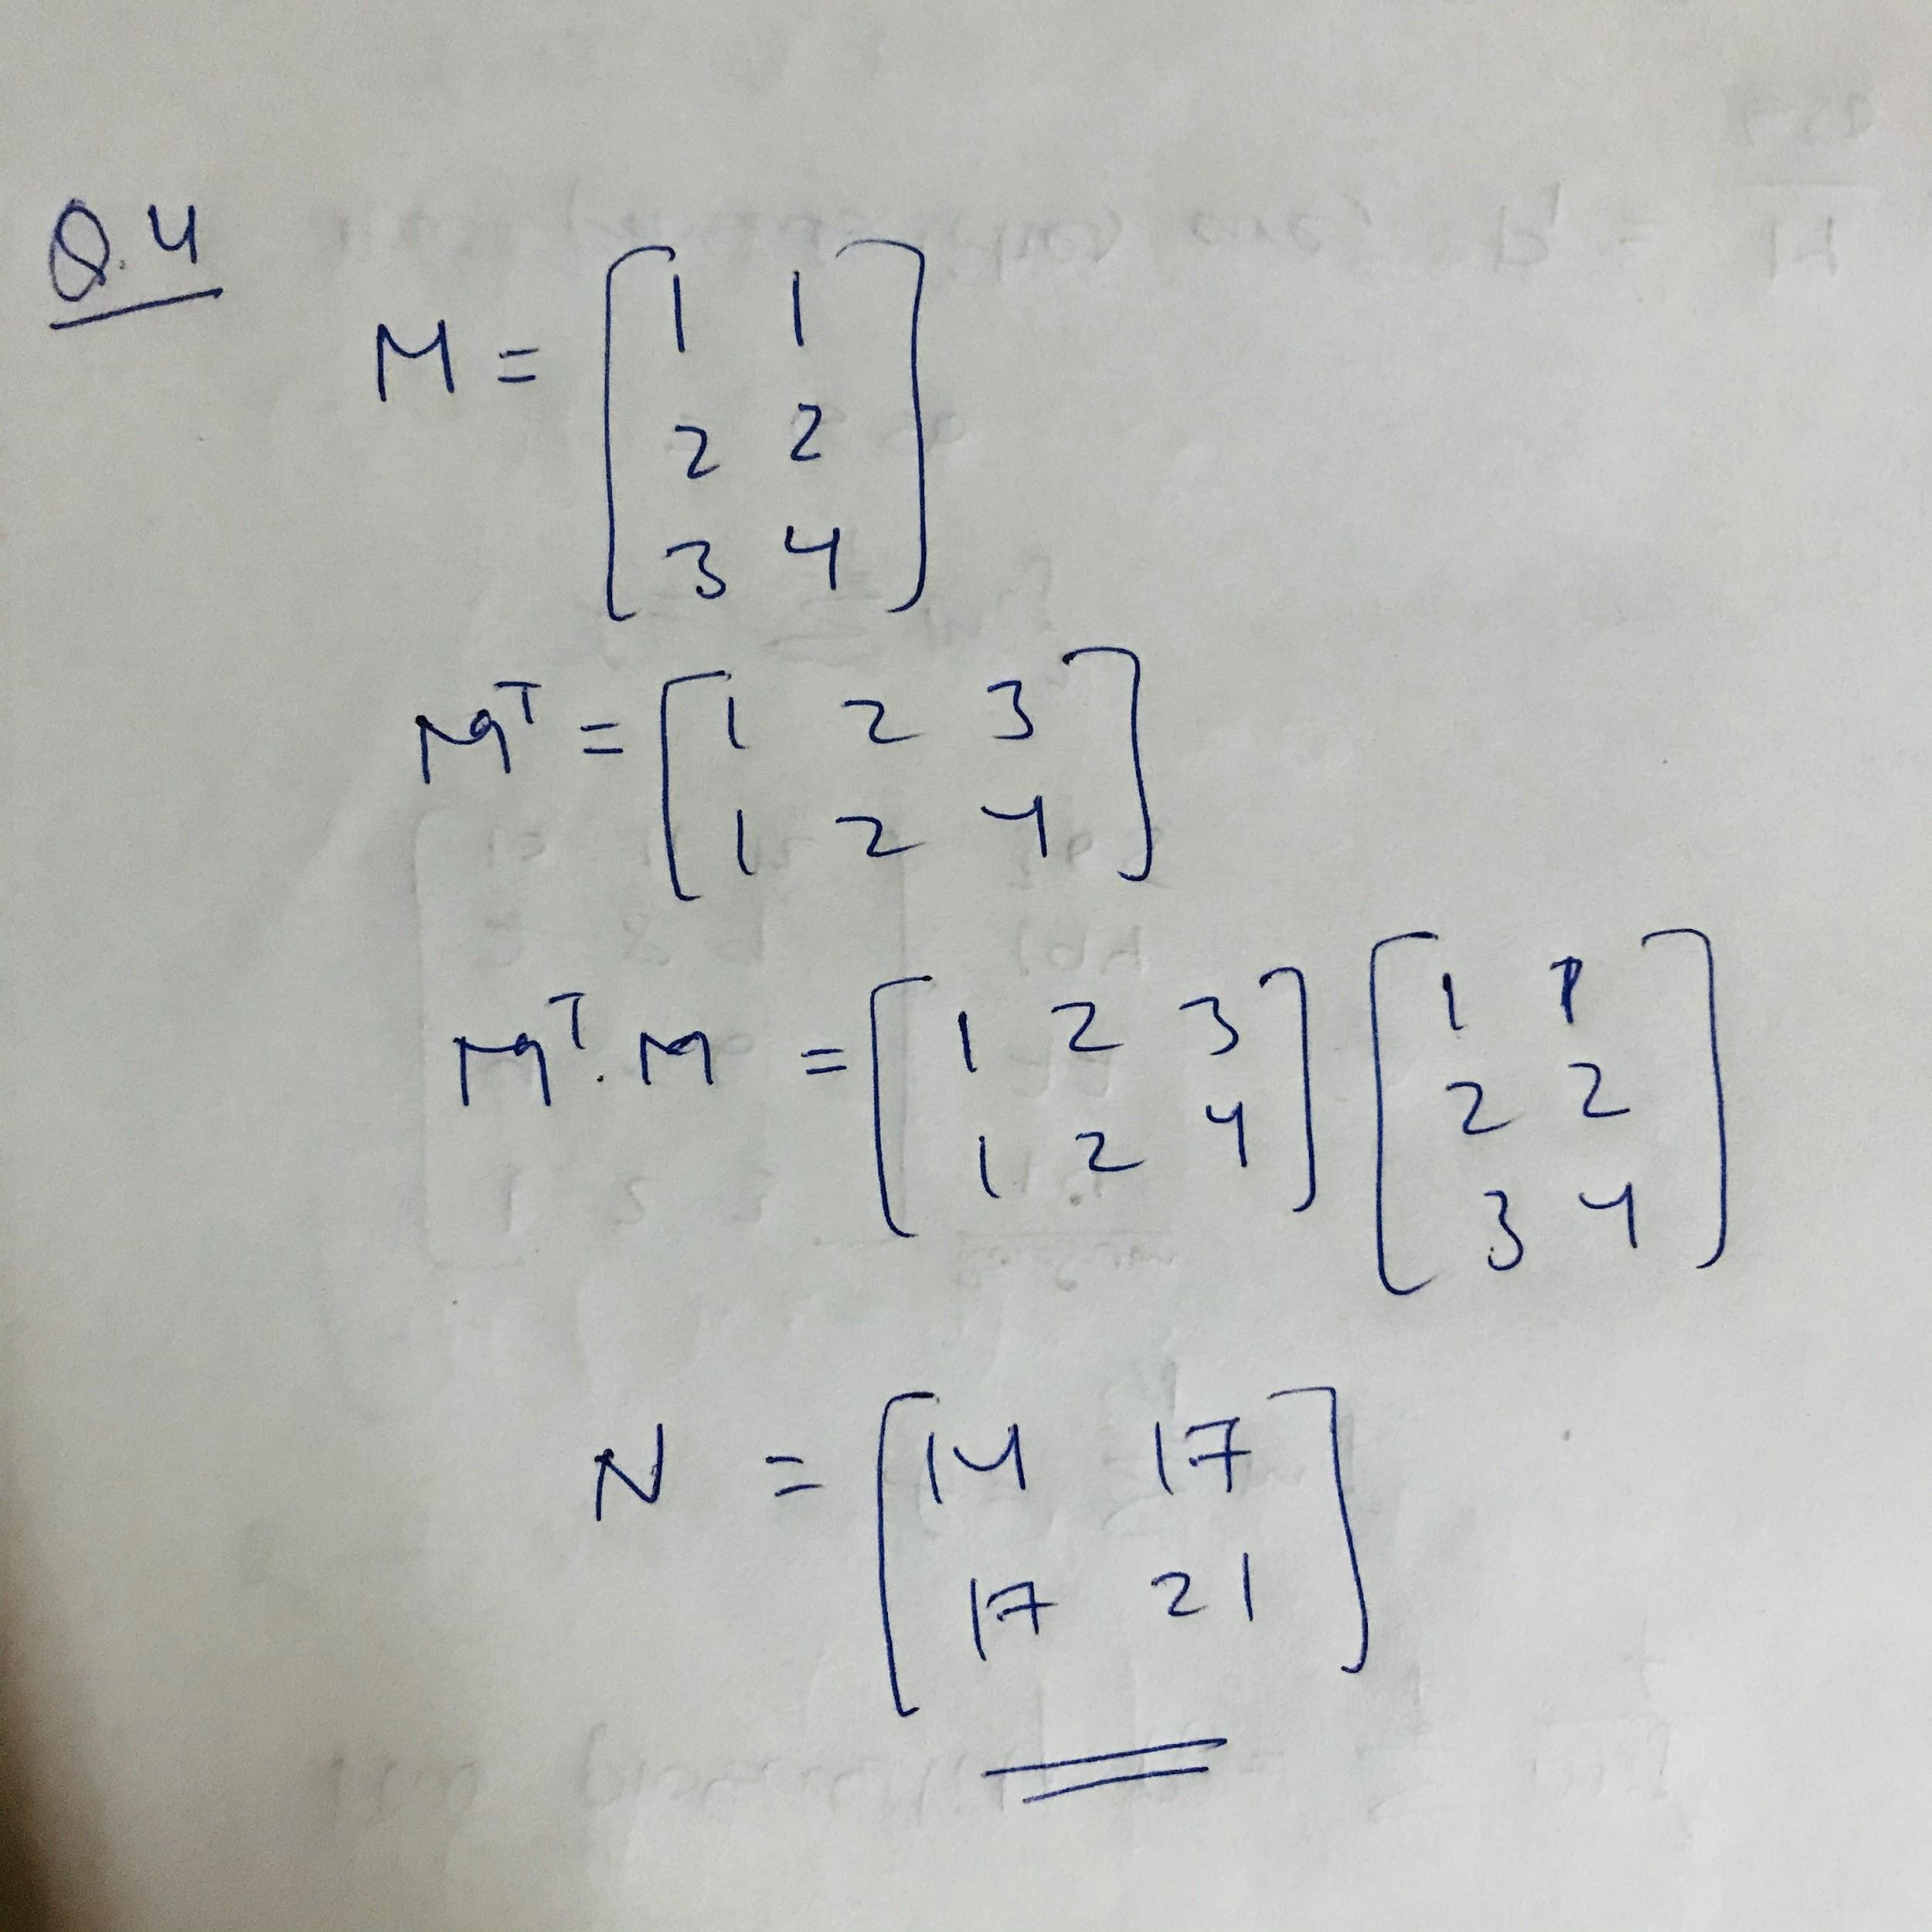 Q.4
M = [1 1
2 2
3 4]
Mᵀ = [1 2 3
1 2 4]
Mᵀ. M = [1 2 3
1 2 4] [1 1
2 2
3 4]
N = [14 17
17 21]